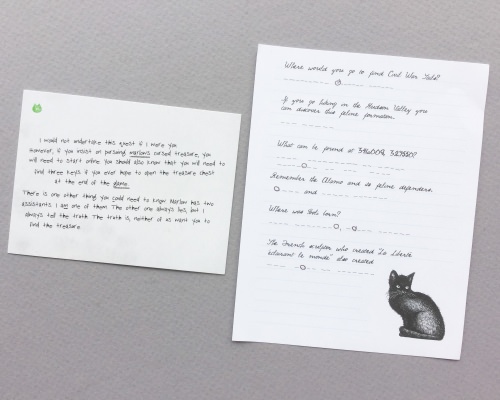 I would not undertake this quest if I were you
However, if you insist on pursuing Marlow's cursed treasure, you
will need to start online. You should also know that you will need to
find three keys if you ever hope to open the treasure chest
at the end of the game.
There is one other thing you could need to know. Marlow has two
assistants. I am one of them. The other one always lies, but I
always tell the truth. The truth is, neither of us want you to
find the treasure.
Where would you go to find Civil War
If you go hiking in the Hudson Valley you
can discover this feline formation.
What can be found at
Remember the Alamo and its feline defendant.
and
Where was born?
The French sculptor who created "La Liberté
éclairant le monde" also created